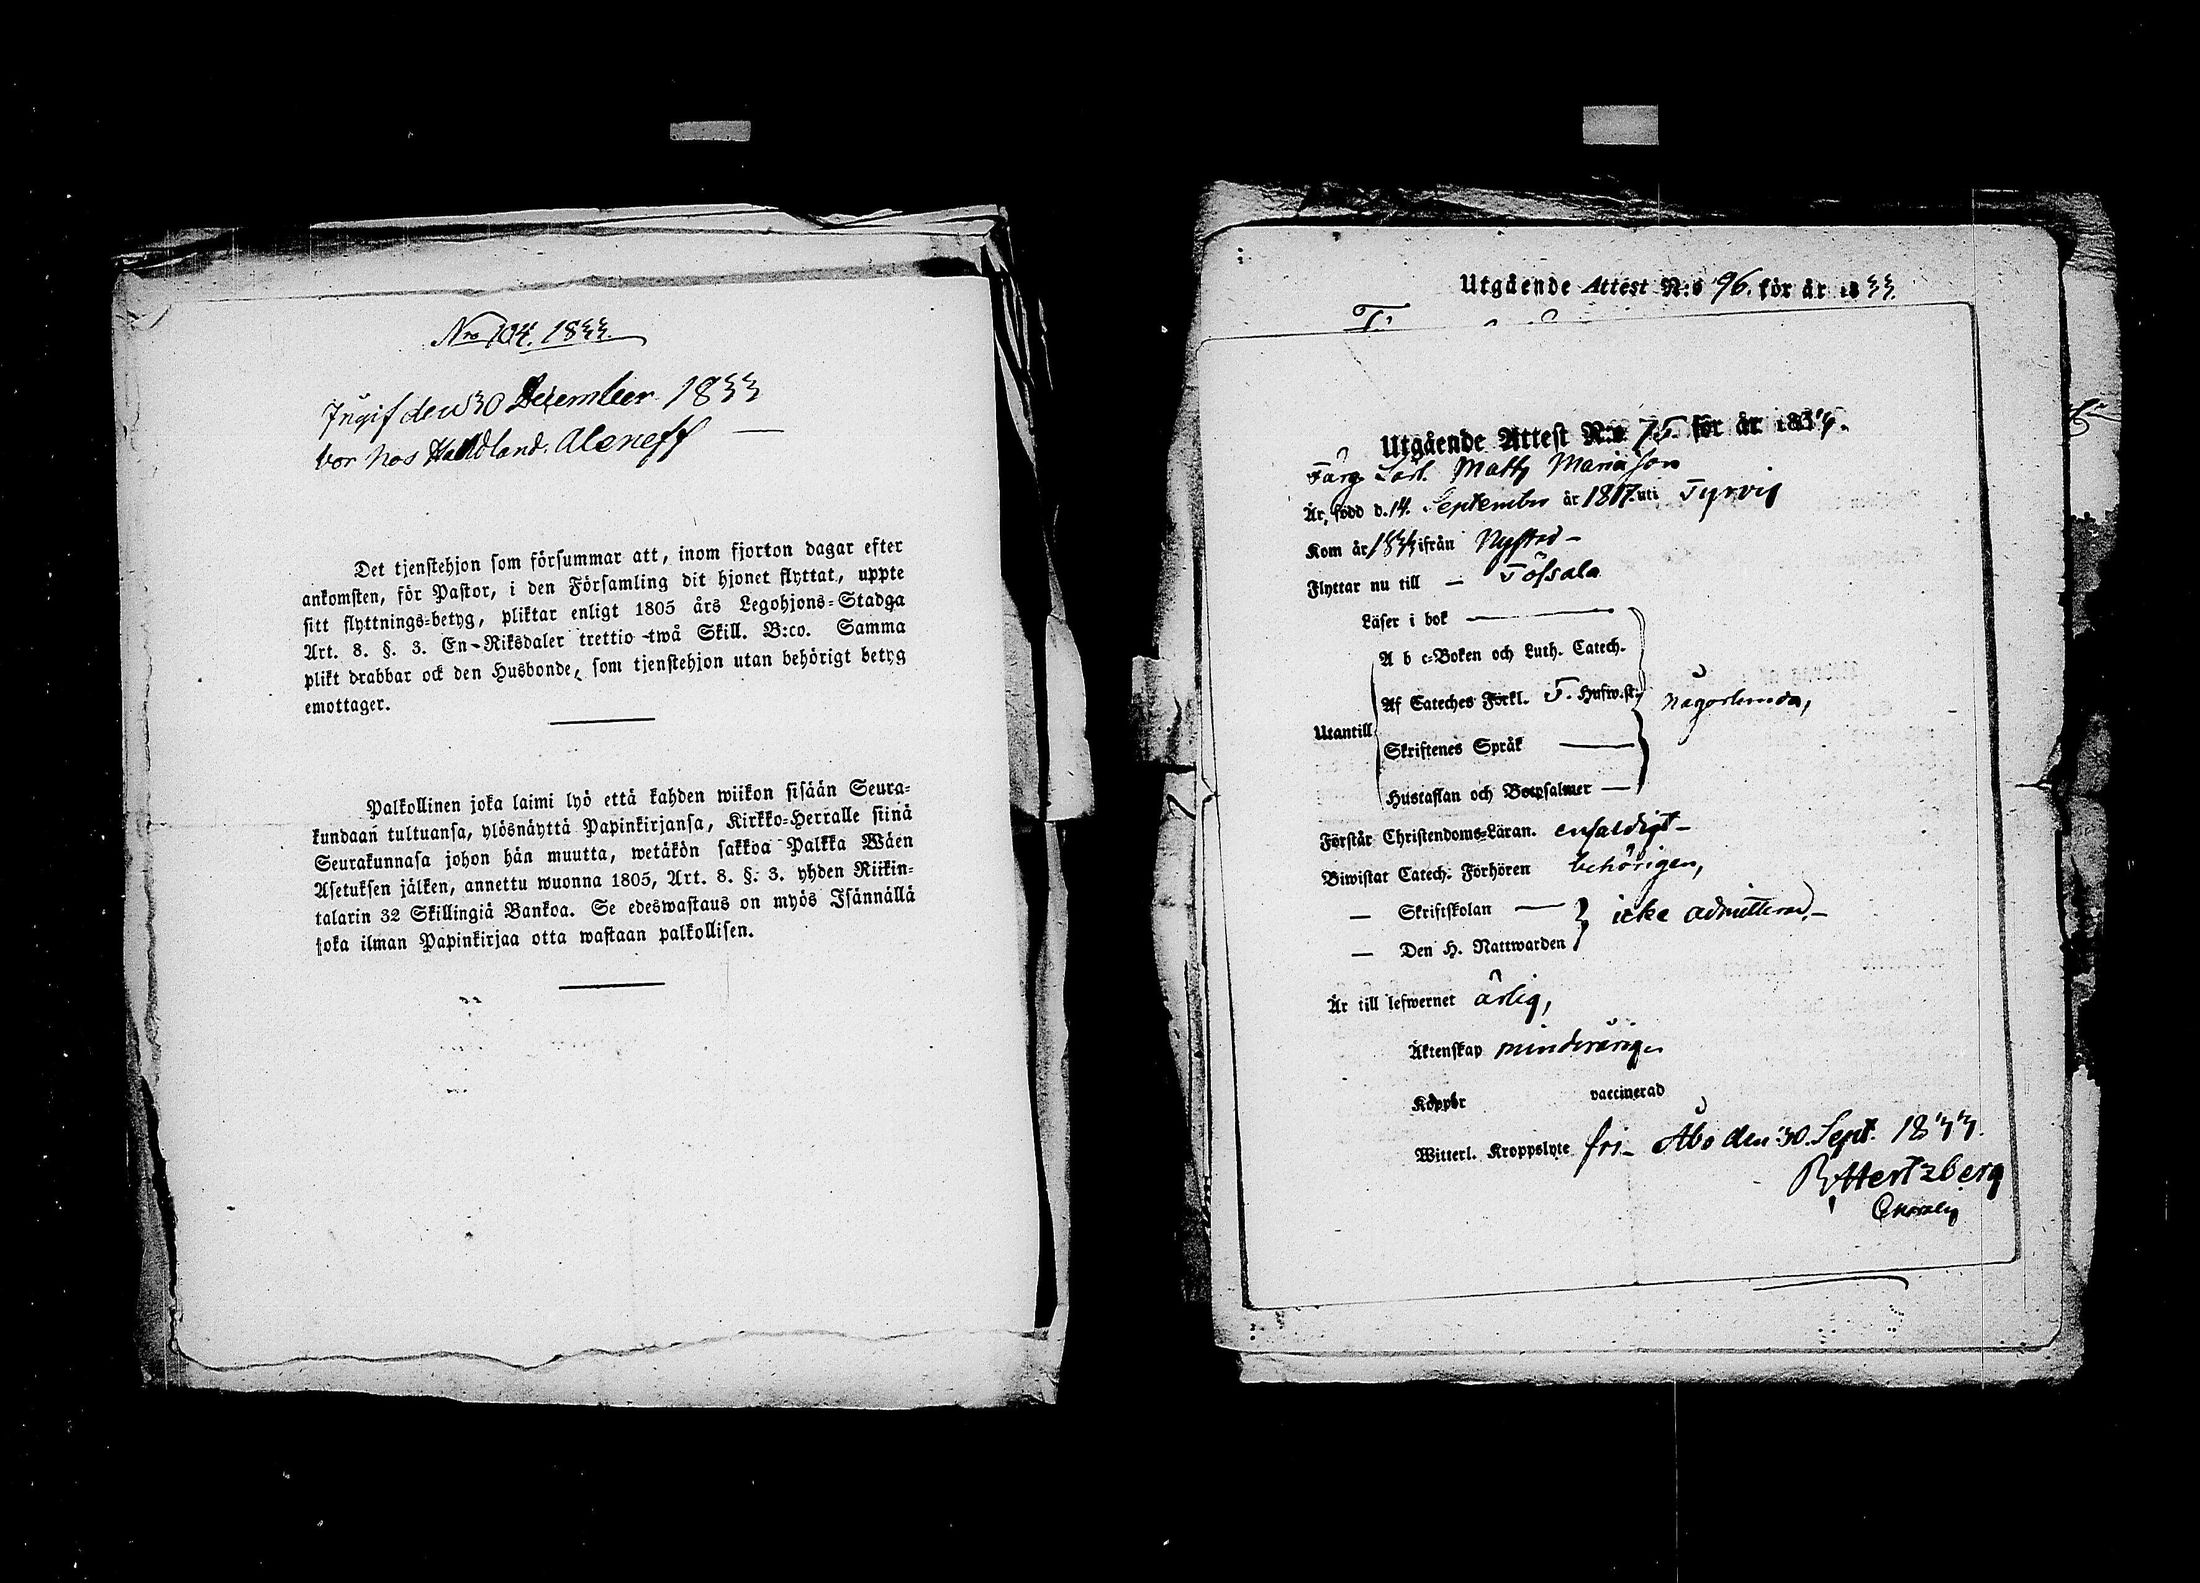 Nro 104. 1833.
Ingif den 30 December 1833
bor hos Handland. Aleneff —
Det tjenstehjon som försummar att, inom fjorton dagar efter
ankomsten, för Pastor, i den Församling dit hjonet flyttat, uppte
sitt flyttnings-betyg, pliktar enligt 1805 års Legohjons-Stadga
Art. 8. §. 3. En-Riksdaler trettio twå Skill. B:co. Samma
plikt drabbar ock den Husbonde, som tjenstehjon utan behörigt betyg
emottager.
Palkollinen joka laimi lyö että kahden wiikon sisään Seura-
kundaan tultuansa, ylösnäyttä Papinkirjansa, Kirkko-Herralle siinä
Seurakunnasa johon hän muutta, wetäkön sakkoa Palkka Wäen
Asetuksen jälken, annettu wuonna 1805, Art. 8. §. 3. yhden Riikin-
talarin 32 Skillingiä Bankoa. Se edeswastaus on myös Isännällä
joka ilman Papinkirjaa otta wastaan palkollisen.
Utgående Attest N:o 96. för år 1833
Utgående Attest N:o 75. för år 1833.
Färg. Lärl. Matts Mariæson
Är född d. 14. September år 1817. uti Tyrvis
Kom år 1833 ifrån Nystad —
Flyttar nu till — Töfsala
Läser i bok —
A b c-Boken och Luth. Catech.
Utantill
Af Cateches Förkl. T. Husw.st.
någorlunda,
Skriftenes Språk —
Hustaflan och Botpsalmer —
Förstår Christendoms-Läran. enfaldigt —
Biwistat Catech. Förhören behörigen,
— Skriftskolan —
icke admitterad, —
— Den H. Nattwarden
Är till lefwernet ärlig,
Äktenskap minderårig.
Koppor vaccinerad
Witterl. Kroppslyte fri — Åbo den 30. Sept. 1833.
Hertzberg